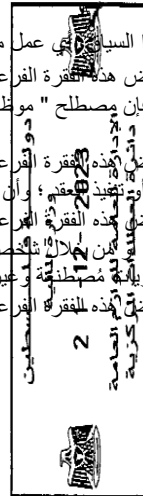 عمل م
ض هذه الفقرة الفرع
فإن مصطلح " موظ
ض هذه الفقرة الفرع
تنفيذ العقد ؛ وأن
ض هذه الفقرة الفرع
من خلال شخص
مُصطنعة وغير
ض هذه الفقرة الفرع
دولة فلسطين
وزارة المالية
2 1 -12- 2023
العامة للوازم العامة
دائرة العطاءات المركزية